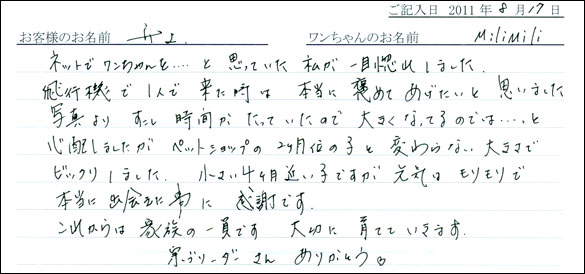 ご記入日 2011 年 8 月 17 日
お客様のお名前 ワンちゃんのお名前 MiliMili
ネットでワンちゃんを‥‥と 思っていた 私が 一目惚れしました。
飛行機で 1人で 来た時は 本当に 褒めて あげたいと 思いました
写真より すこし 時間が たっていたので 大きくなってるのでは‥‥と
心配しましたが ペットショップの 2ヶ月位の子と 変わらない 大きさで
ビックリしました。 小さい 4ヶ月 近い 子ですが 元気は モリモリで
本当に 出会えた事に 感謝です。
これからは 家族の 一員です 大切に 育てて いきます。
ブリーダー さん ありがとう。